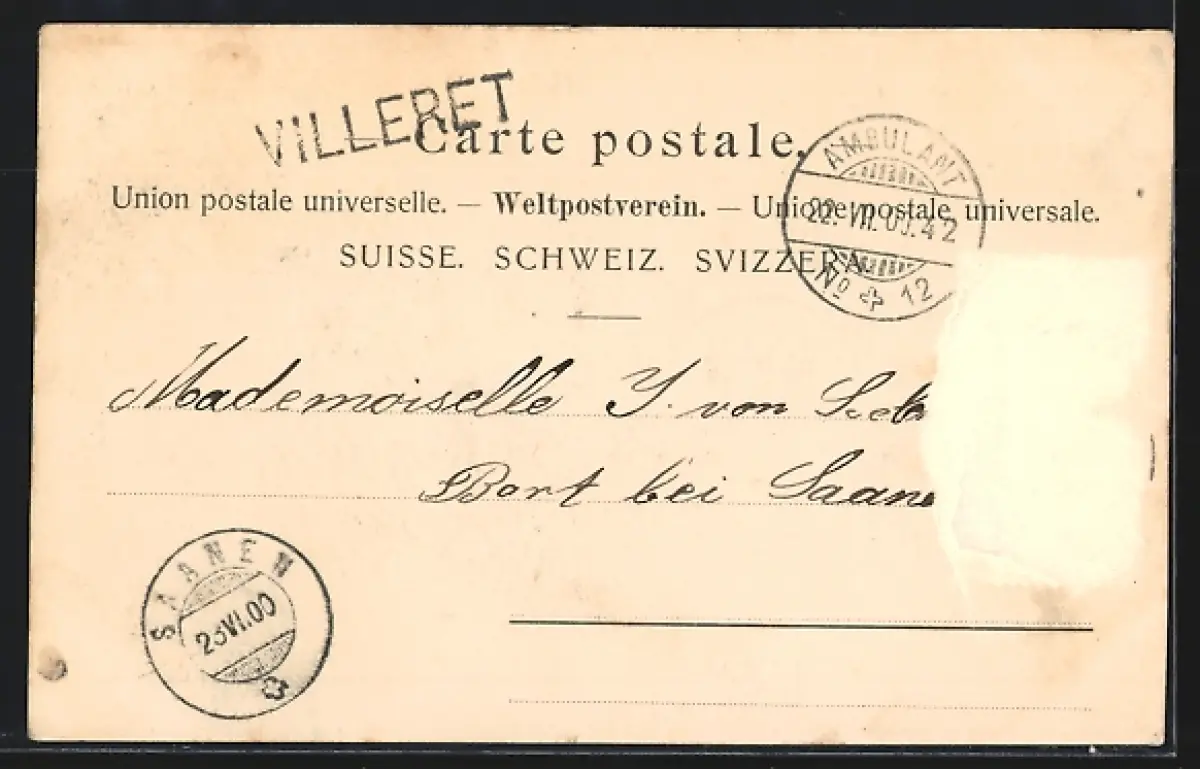 VILLERET
Carte postale.
AMBULANT
Union postale universelle. — Weltpostverein. — Unione postale universale.
SUISSE. SCHWEIZ. SVIZZERA.
No 12
Mademoiselle Y. von
Bort bei Saane
SAANEN
VI.00